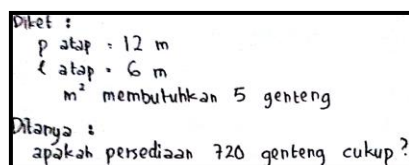 Diket :
p atap = 12 m
l atap = 6 m
m² membutuhkan 5 genteng
Ditanya :
apakah persediaan 720 genteng cukup?